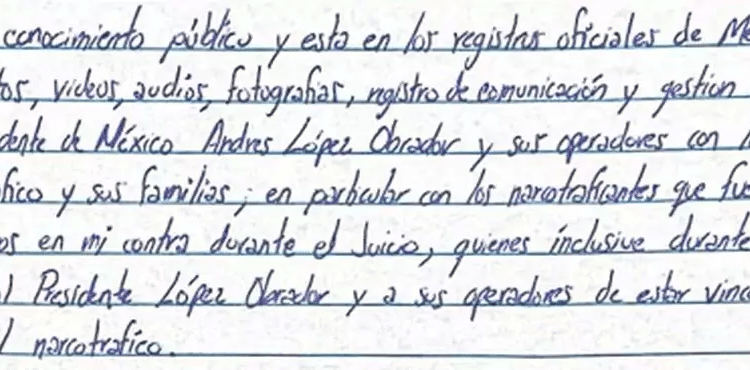 conocimiento público y esta en los registros oficiales de Mé
os, videos, audios, fotografias, registro de comunicación y gestion
dente de México Andres López Obrador y sus operadores con
fico y sus familias; en particular con los narcotraficantes que fue
os en mi contra durante el Juicio, quienes inclusive durante
l Presidente López Obrador y a sus operadores de estar vinc
l narcotrafico.